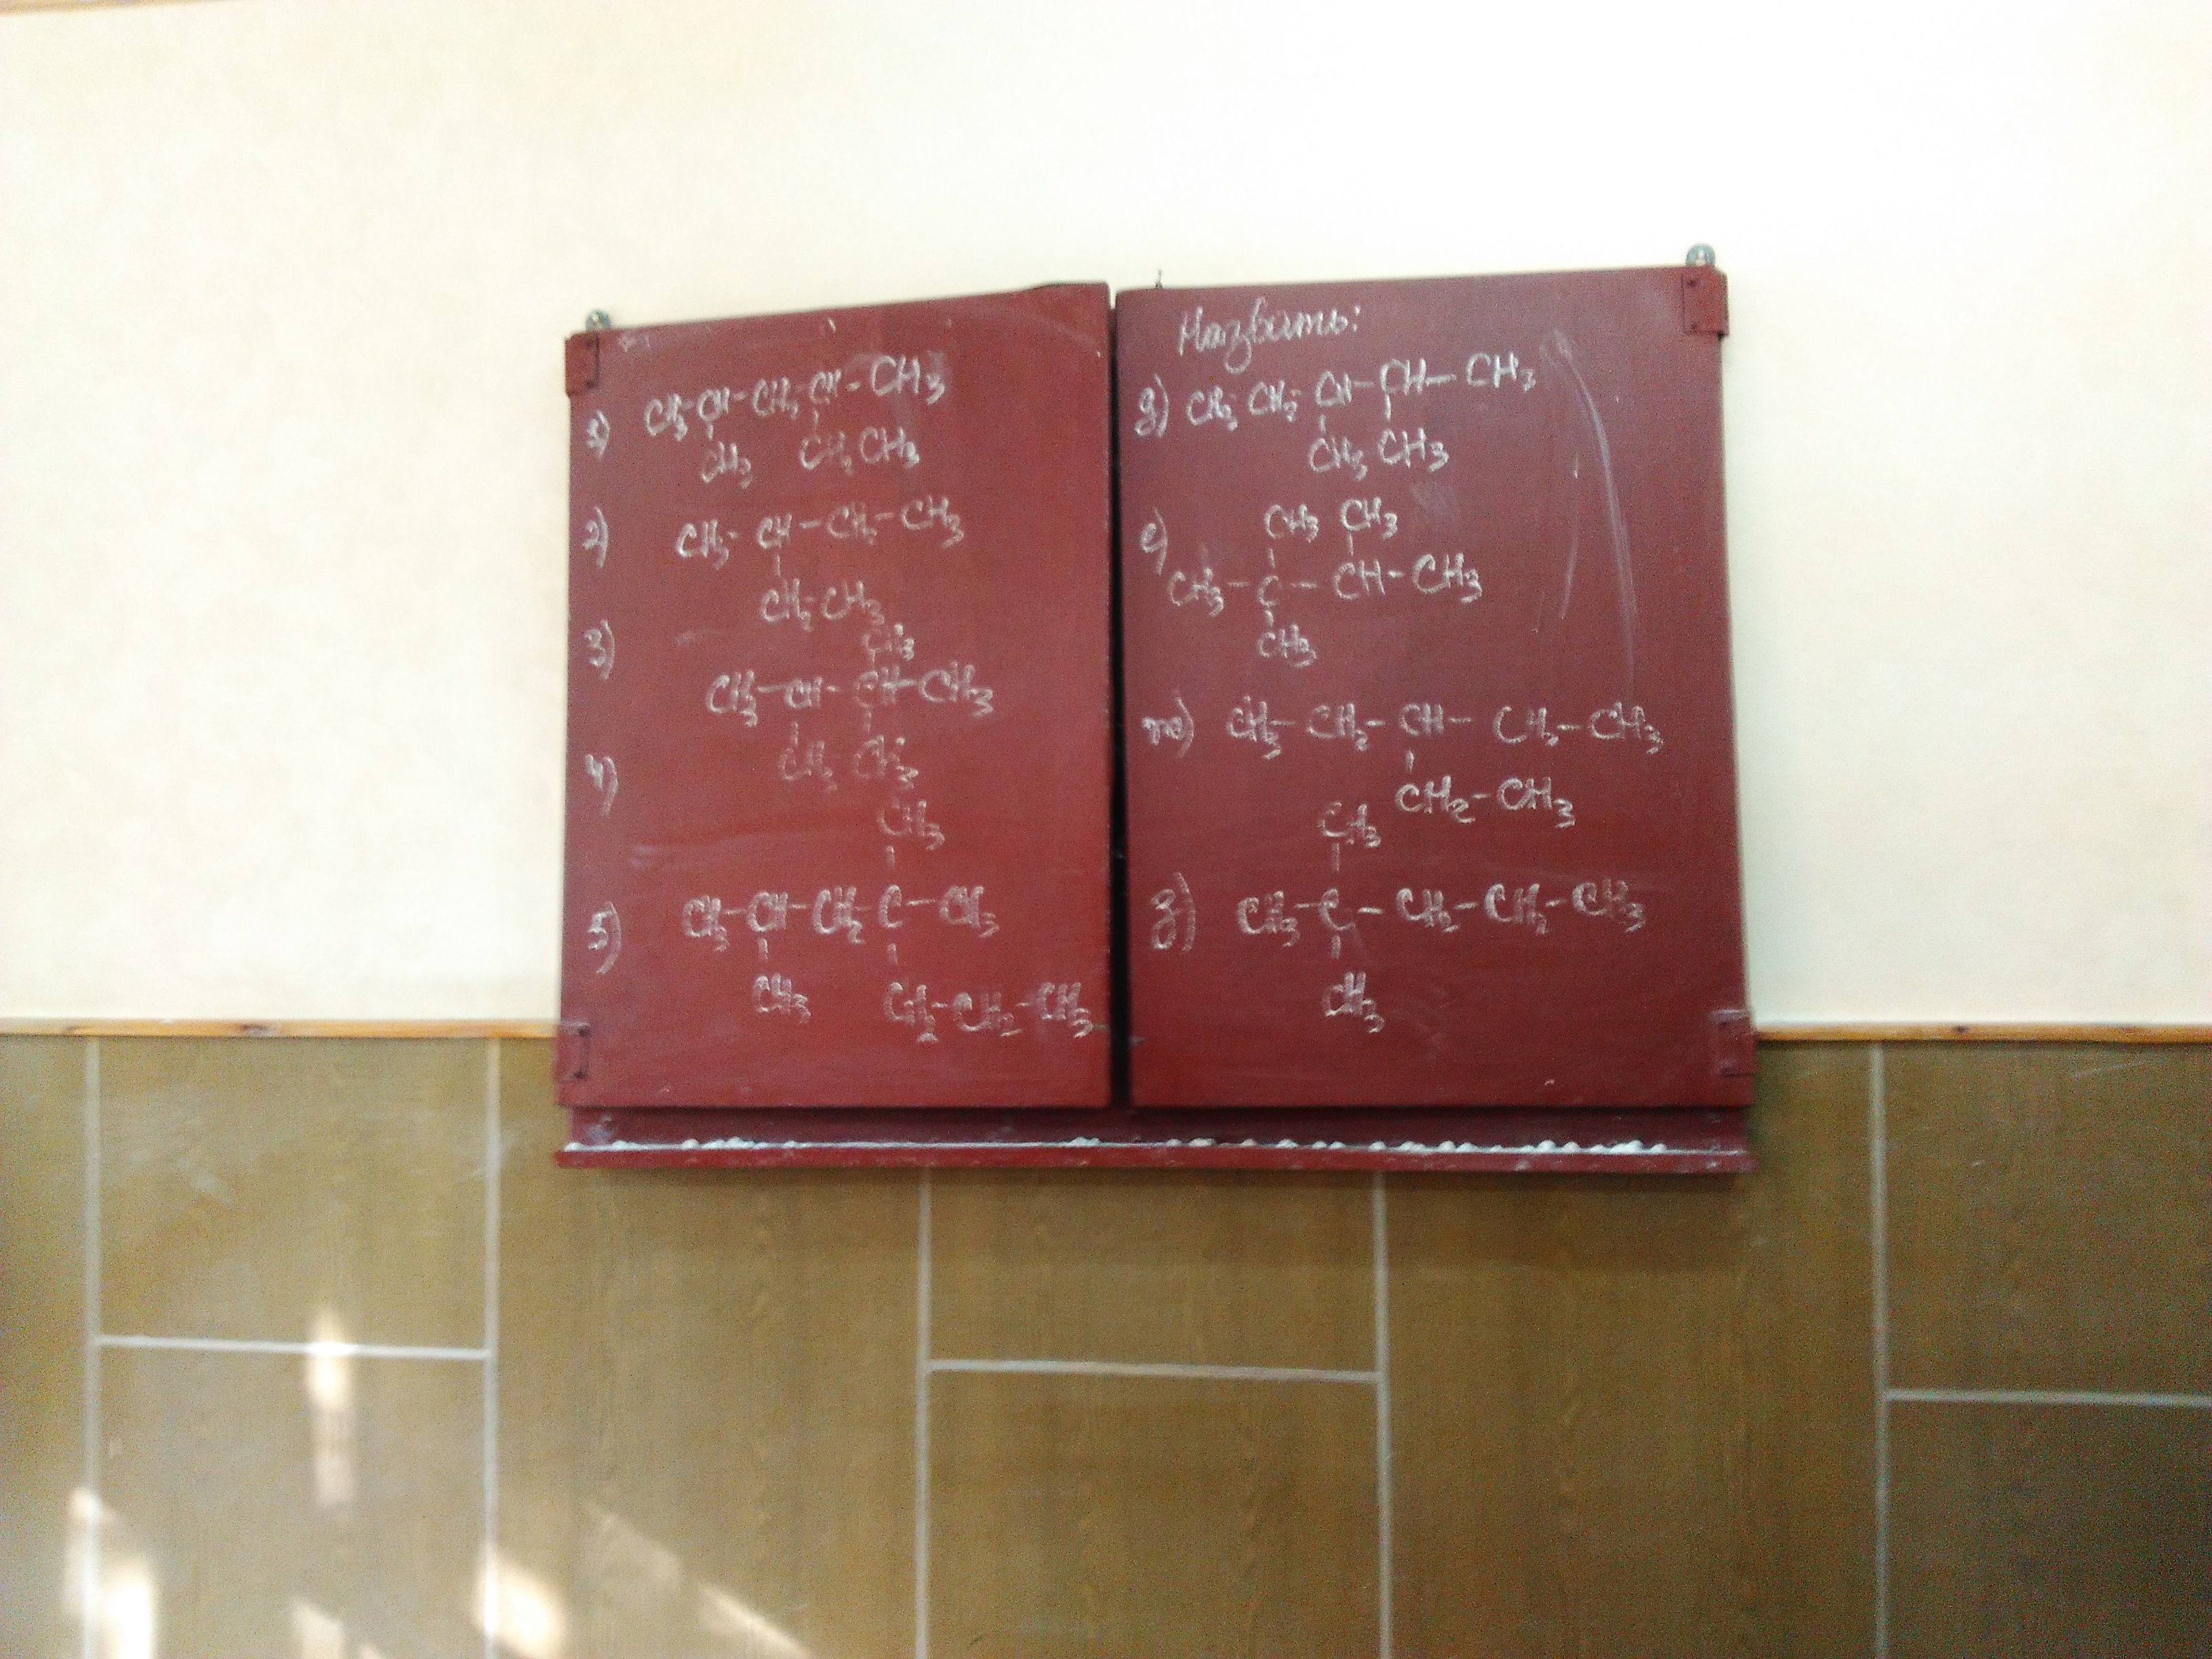 1) CH3-CH-CH2-CH-CH3
CH3 CH2 CH3
2) CH3-CH-CH2-CH3
CH2-CH3
3)
CH3
CH3-CH-CH-CH3
CH3 CH3
4)
CH3
5) CH3-CH-CH2-C-CH3
CH3 CH2-CH2-CH3
Назвать:
д) CH3-CH2-CH-CH-CH3
CH3 CH3
е) CH3 CH3
CH3-C-CH-CH3
CH3
ж) CH3-CH2-CH-CH2-CH3
CH2-CH3
CH3
з) CH3-C-CH2-CH2-CH3
CH3